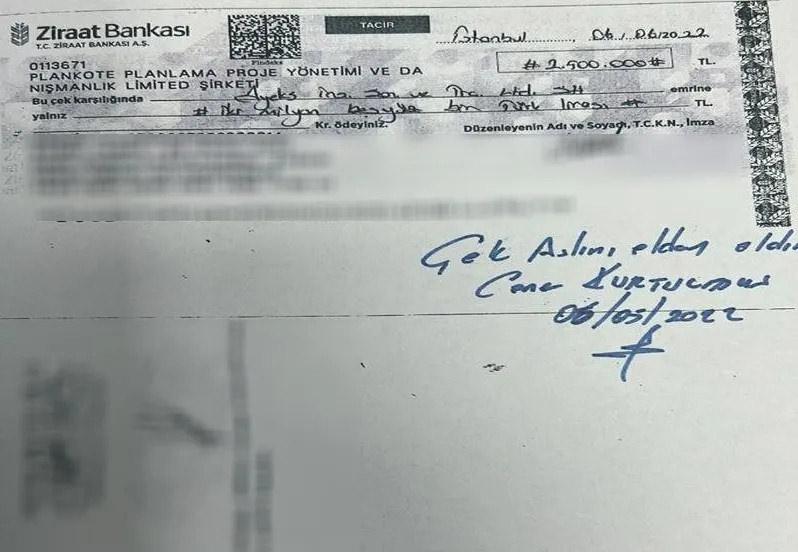 Ziraat Bankası
T.C. ZİRAAT BANKASI A.Ş.
TACİR
Findeks
İstanbul, 06/06/2022
0113671
PLANKOTE PLANLAMA PROJE YÖNETİMİ VE DA
NIŞMANLIK LİMİTED ŞİRKETİ
# 2.500.000 # TL.
Bu çek karşılığında İnş. San ve Tic. Ltd. Şti emrine
yalnız # iki milyon beşyüz bin Türk lirası # TL.
Kr. ödeyiniz.
Düzenleyenin Adı ve Soyadı, T.C.K.N., İmza
Çek Aslını elden aldım
Caner KURTULMUŞ
06/05/2022